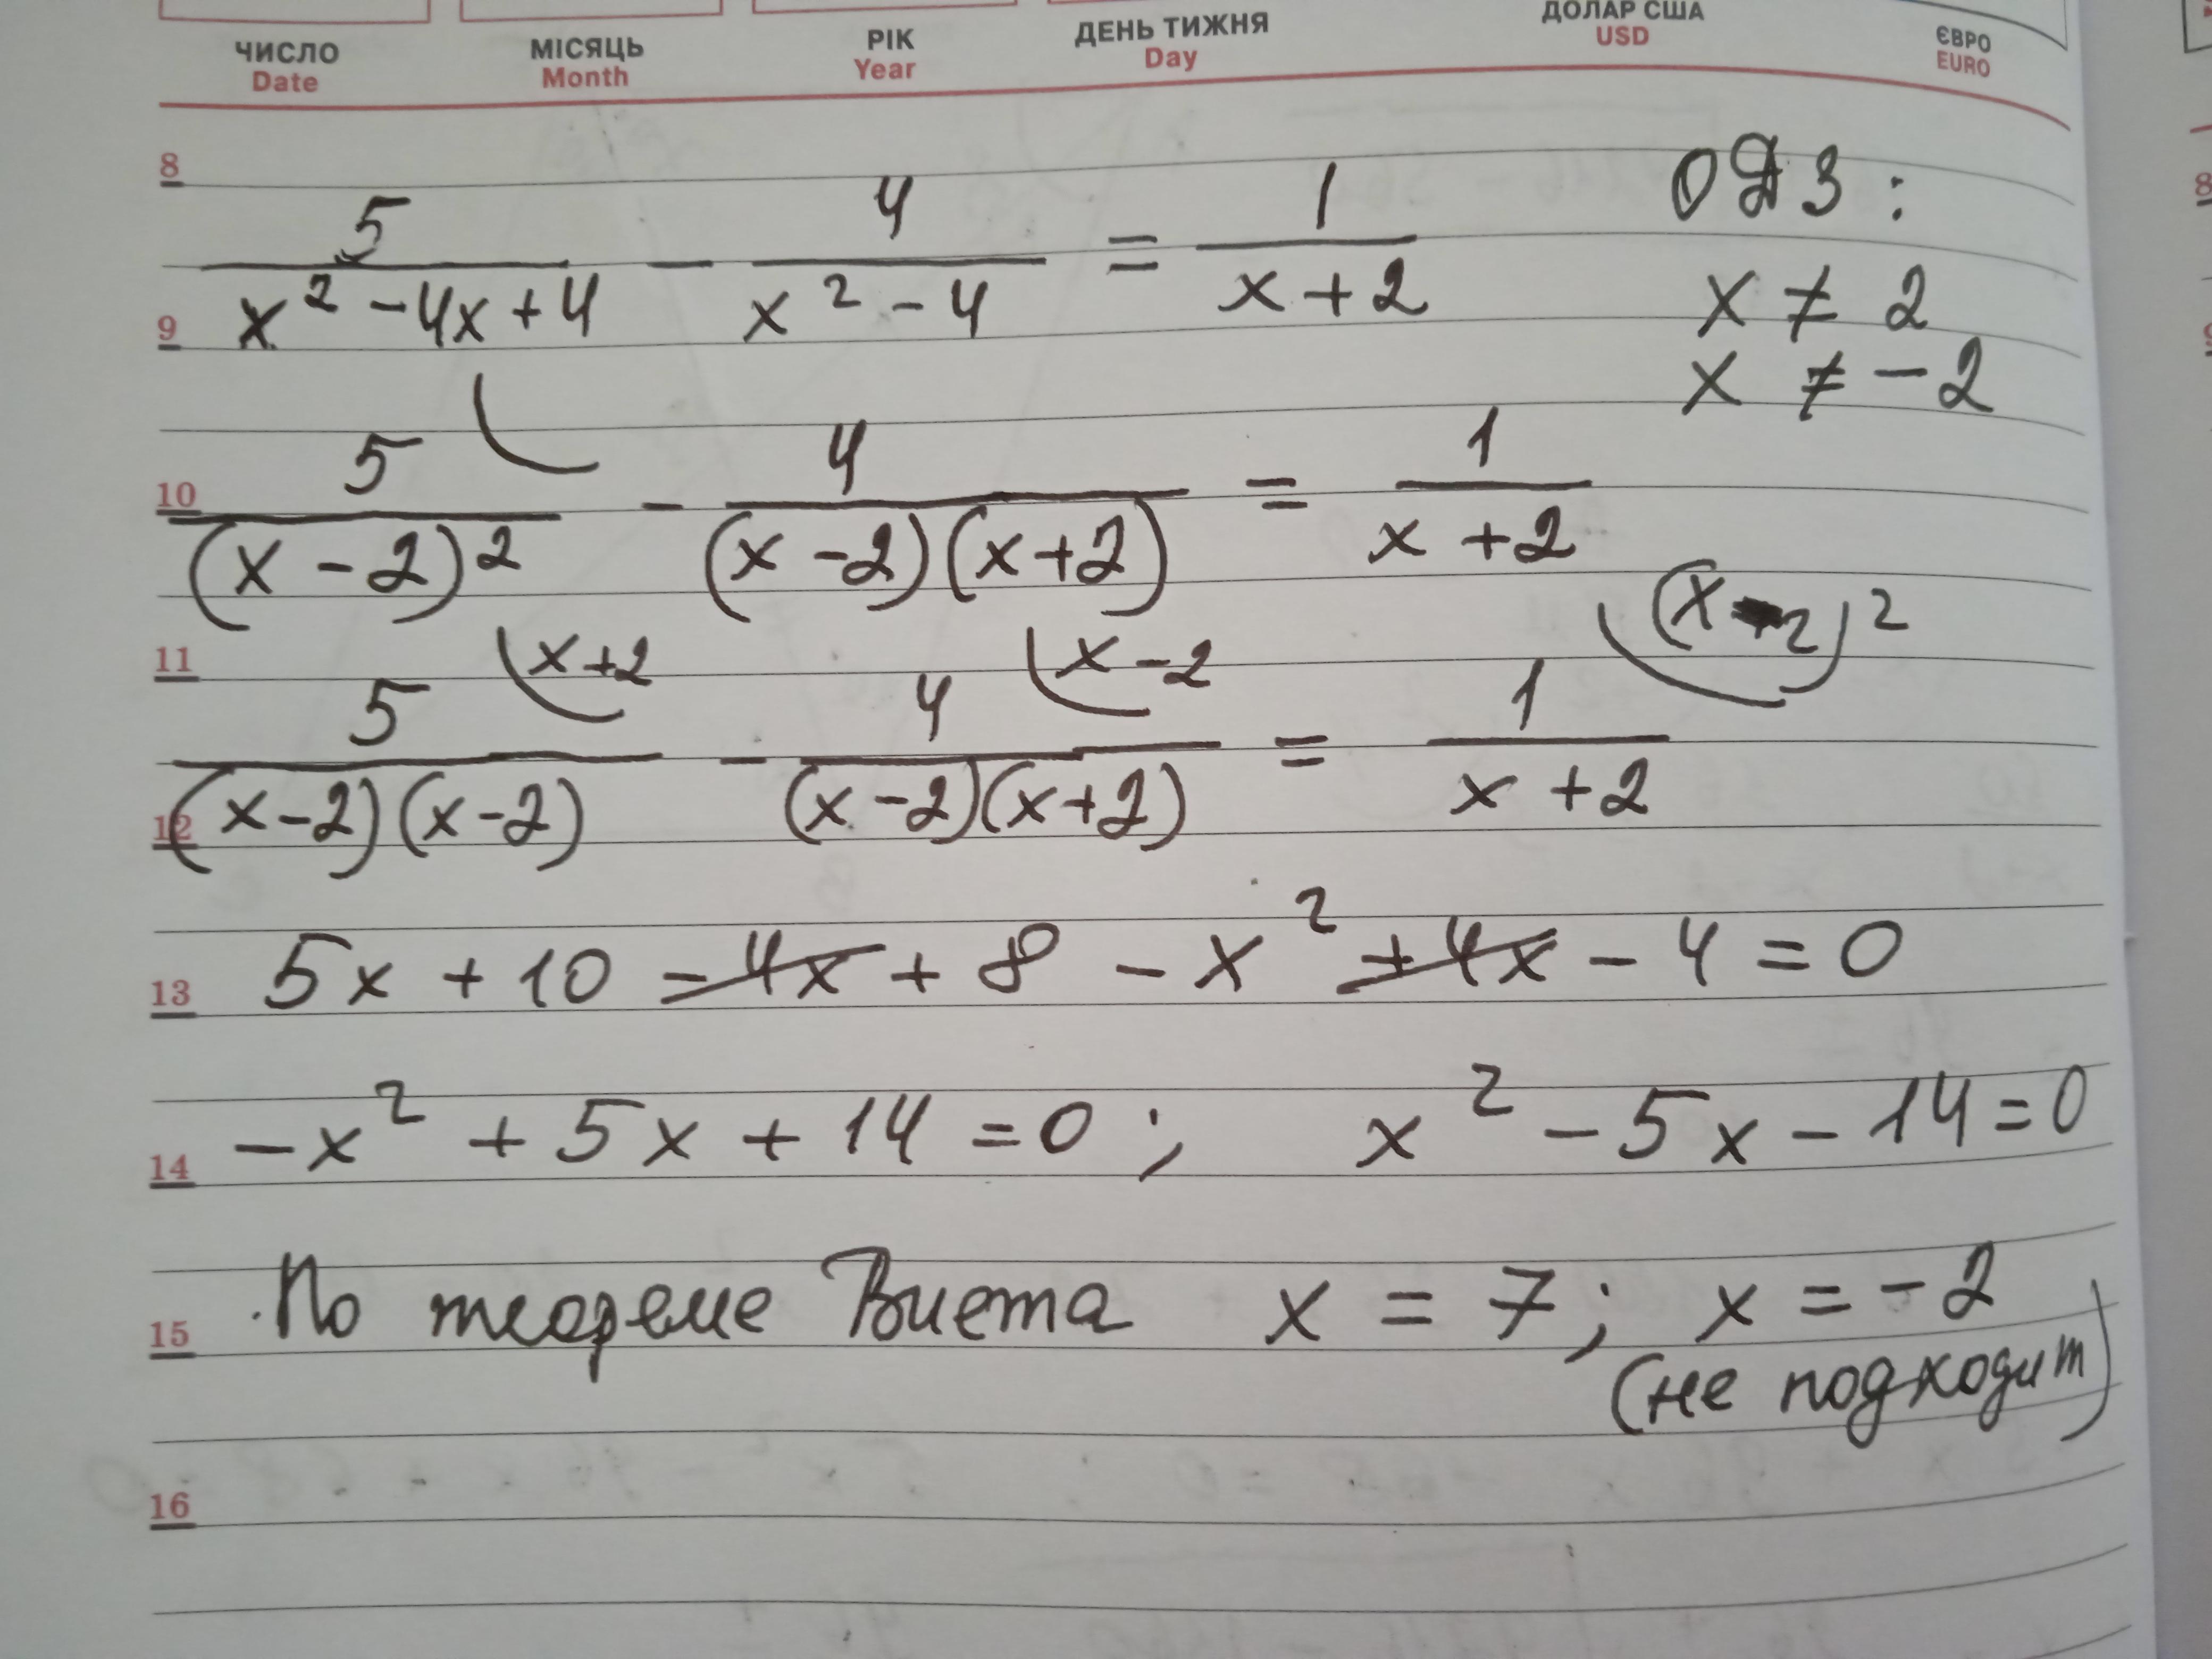 ЧИСЛО МІСЯЦЬ РІК ДЕНЬ ТИЖНЯ ДОЛАР США ЄВРО
Date Month Year Day USD EURO
8
5/(x² - 4x + 4) - 4/(x² - 4) = 1/(x + 2) ОДЗ:
9
x ≠ 2
x ≠ -2
10
5/(x - 2)² - 4/((x - 2)(x + 2)) = 1/(x + 2)
11
x + 2 x - 2 (x - 2)²
5/((x - 2)(x - 2)) - 4/((x - 2)(x + 2)) = 1/(x + 2)
12
13 5x + 10 - 4x + 8 - x² + 4x - 4 = 0
14 -x² + 5x + 14 = 0; x² - 5x - 14 = 0
15 По теореме Виета x = 7; x = -2
(не подходит)
16